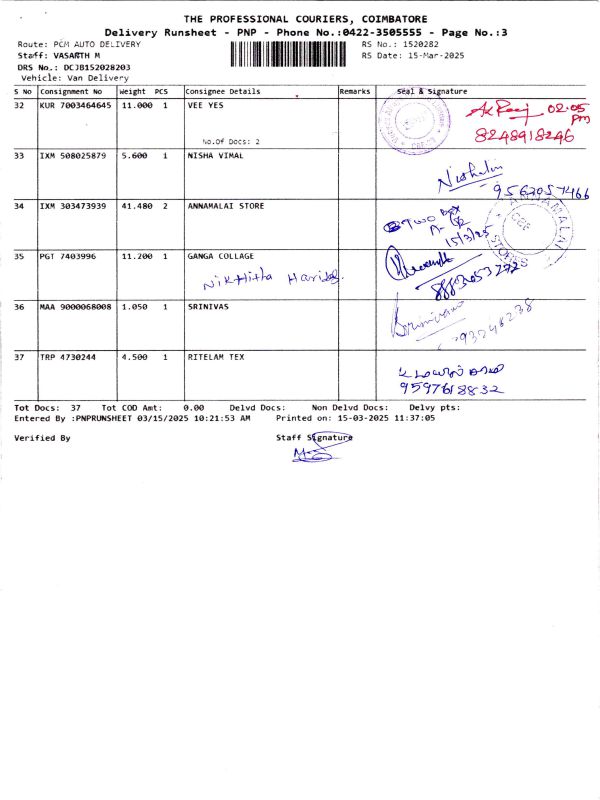 THE PROFESSIONAL COURIERS, COIMBATORE
Delivery Runsheet - PNP - Phone No.:0422-3505555 - Page No.:3
Route: PCM AUTO DELIVERY RS No.: 1520282
Staff: VASARTH M RS Date: 15-Mar-2025
DRS No.: DCJB152028203
Vehicle: Van Delivery
S No Consignment No Weight PCS Consignee Details Remarks Seal & Signature
32 KUR 7003464645 11.000 1 VEE YES 02.05 pm
No.Of Docs: 2 8248918246
33 IXM 508025879 5.600 1 NISHA VIMAL
34 IXM 303473939 41.480 2 ANNAMALAI STORE Two Box
15/3/25
ANNAMALAI STORES CBE
35 PGT 7403996 11.200 1 GANGA COLLAGE
Nikhitha
36 MAA 9000068008 1.050 1 SRINIVAS Srinivasa
37 TRP 4730244 4.500 1 RITELAM TEX
9597618832
Tot Docs: 37 Tot COD Amt: 0.00 Delvd Docs: Non Delvd Docs: Delvy pts:
Entered By :PNPRUNSHEET 03/15/2025 10:21:53 AM Printed on: 15-03-2025 11:37:05
Verified By Staff Signature